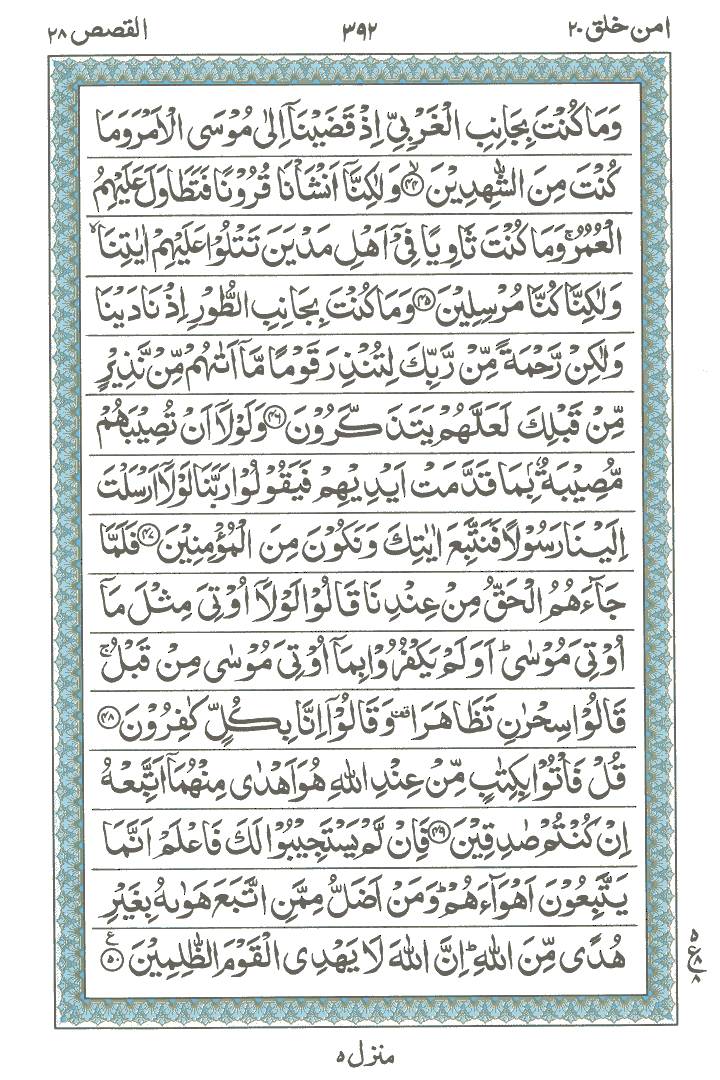 القصص ٢٨ ٣٩٢ امن خلق ٢٠
وَمَا كُنْتَ بِجَانِبِ الْغَرْبِيِّ اِذْ قَضَيْنَاۤ اِلٰى مُوْسَى الْاَمْرَ وَمَا
كُنْتَ مِنَ الشّٰهِدِيْنَ ﴿۴۴﴾ۙ وَلٰكِنَّاۤ اَنْشَاْنَا قُرُوْنًا فَتَطَاوَلَ عَلَيْهِمُ
الْعُمُرُۚ وَمَا كُنْتَ ثَاوِيًا فِيْۤ اَهْلِ مَدْيَنَ تَتْلُوْا عَلَيْهِمْ اٰيٰتِنَاۙ
وَلٰكِنَّا كُنَّا مُرْسِلِيْنَ ﴿۴۵﴾ وَمَا كُنْتَ بِجَانِبِ الطُّوْرِ اِذْ نَادَيْنَا
وَلٰكِنْ رَّحْمَةً مِّنْ رَّبِّكَ لِتُنْذِرَ قَوْمًا مَّاۤ اَتٰىهُمْ مِّنْ نَّذِيْرٍ
مِّنْ قَبْلِكَ لَعَلَّهُمْ يَتَذَكَّرُوْنَ ﴿۴۶﴾ وَلَوْلَاۤ اَنْ تُصِيْبَهُمْ
مُّصِيْبَةٌۢ بِمَا قَدَّمَتْ اَيْدِيْهِمْ فَيَقُوْلُوْا رَبَّنَا لَوْلَاۤ اَرْسَلْتَ
اِلَيْنَا رَسُوْلًا فَنَتَّبِعَ اٰيٰتِكَ وَنَكُوْنَ مِنَ الْمُؤْمِنِيْنَ ﴿۴۷﴾ فَلَمَّا
جَآءَهُمُ الْحَقُّ مِنْ عِنْدِنَا قَالُوْا لَوْلَاۤ اُوْتِيَ مِثْلَ مَاۤ
اُوْتِيَ مُوْسٰىؕ اَوَلَمْ يَكْفُرُوْا بِمَاۤ اُوْتِيَ مُوْسٰى مِنْ قَبْلُۚ
قَالُوْا سِحْرٰنِ تَظَاهَرَاﵟ وَقَالُوْۤا اِنَّا بِكُلٍّ كٰفِرُوْنَ ﴿۴۸﴾
قُلْ فَاْتُوْا بِكِتٰبٍ مِّنْ عِنْدِ اللّٰهِ هُوَ اَهْدٰى مِنْهُمَاۤ اَتَّبِعْهُ
اِنْ كُنْتُمْ صٰدِقِيْنَ ﴿۴۹﴾ فَاِنْ لَّمْ يَسْتَجِيْبُوْا لَكَ فَاعْلَمْ اَنَّمَا
يَتَّبِعُوْنَ اَهْوَآءَهُمْؕ وَمَنْ اَضَلُّ مِمَّنِ اتَّبَعَ هَوٰىهُ بِغَيْرِ
هُدًى مِّنَ اللّٰهِؕ اِنَّ اللّٰهَ لَا يَهْدِى الْقَوْمَ الظّٰلِمِيْنَ ﴿۵۰﴾ ع
منزل ۵